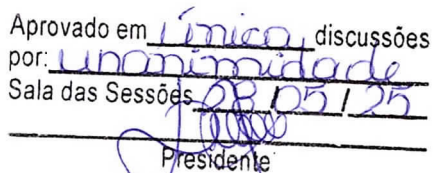 Aprovado em única, discussões
por: unanimidade
Sala das Sessões 28/05/25
Presidente